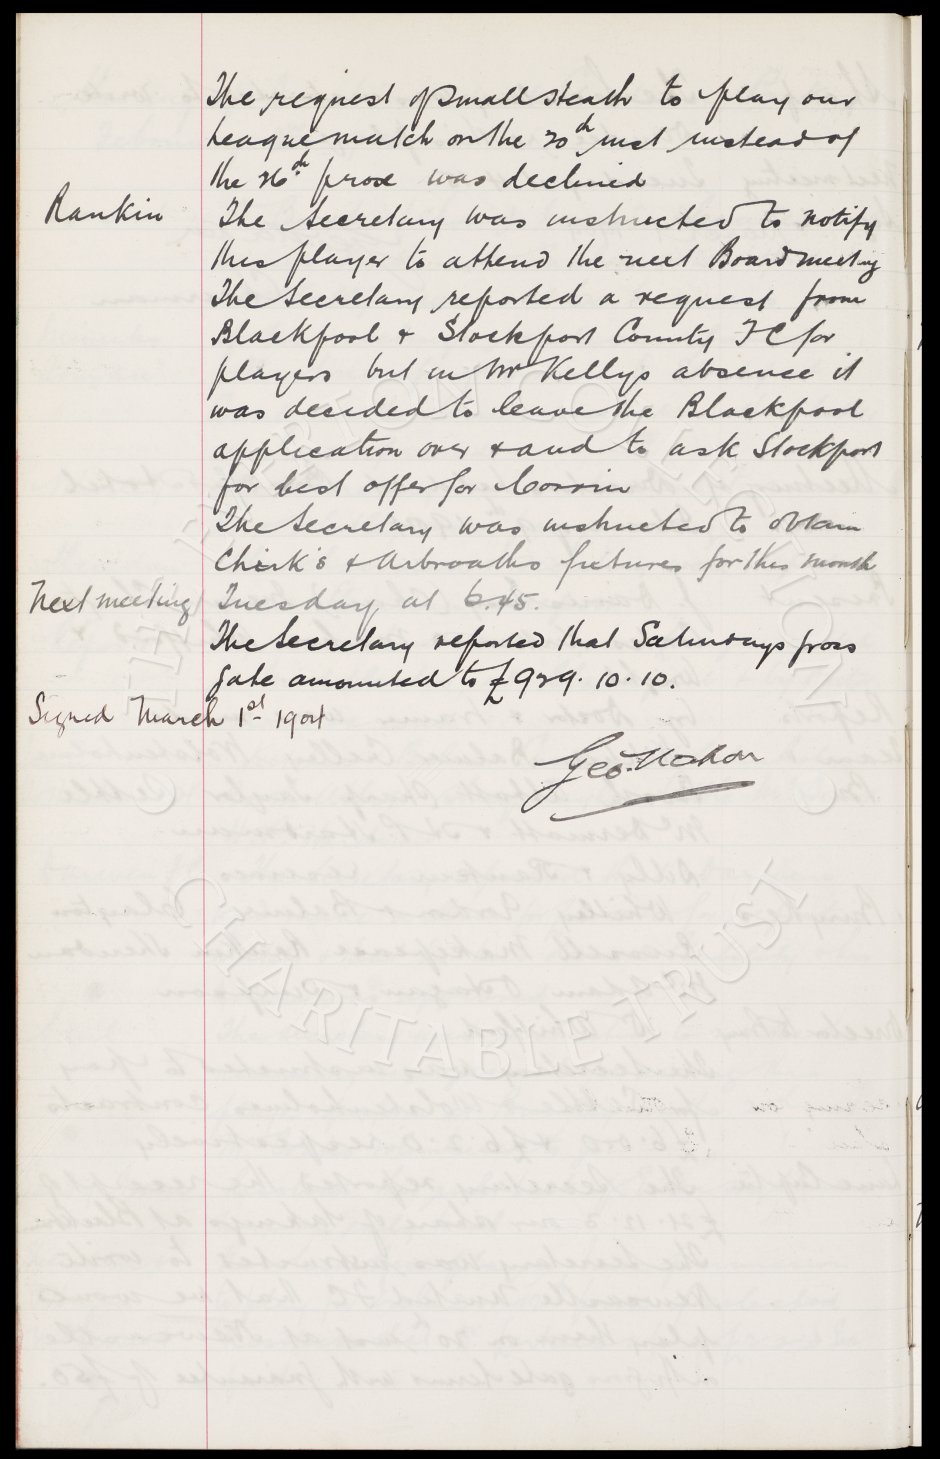 The request of Small Heath to play our
League match on the 20th inst instead of
the 26th prox was declined
Rankin The Secretary was instructed to notify
this player to attend the next Board meeting
The Secretary reported a request from
Blackpool & Stockport County FC for
players but in Mr Kellys absence it
was decided to leave the Blackpool
application over & and to ask Stockport
for best offer for Corrin
The Secretary was instructed to obtain
Chirk's & Arbroaths fixtures for this month
Next meeting Tuesday at 6.45.
The Secretary reported that Saturdays gross
gate amounted to £929.10.10.
Signed March 1st 1904
Geo. Mahon
THE EVERTON COLLECTION
CHARITABLE TRUST